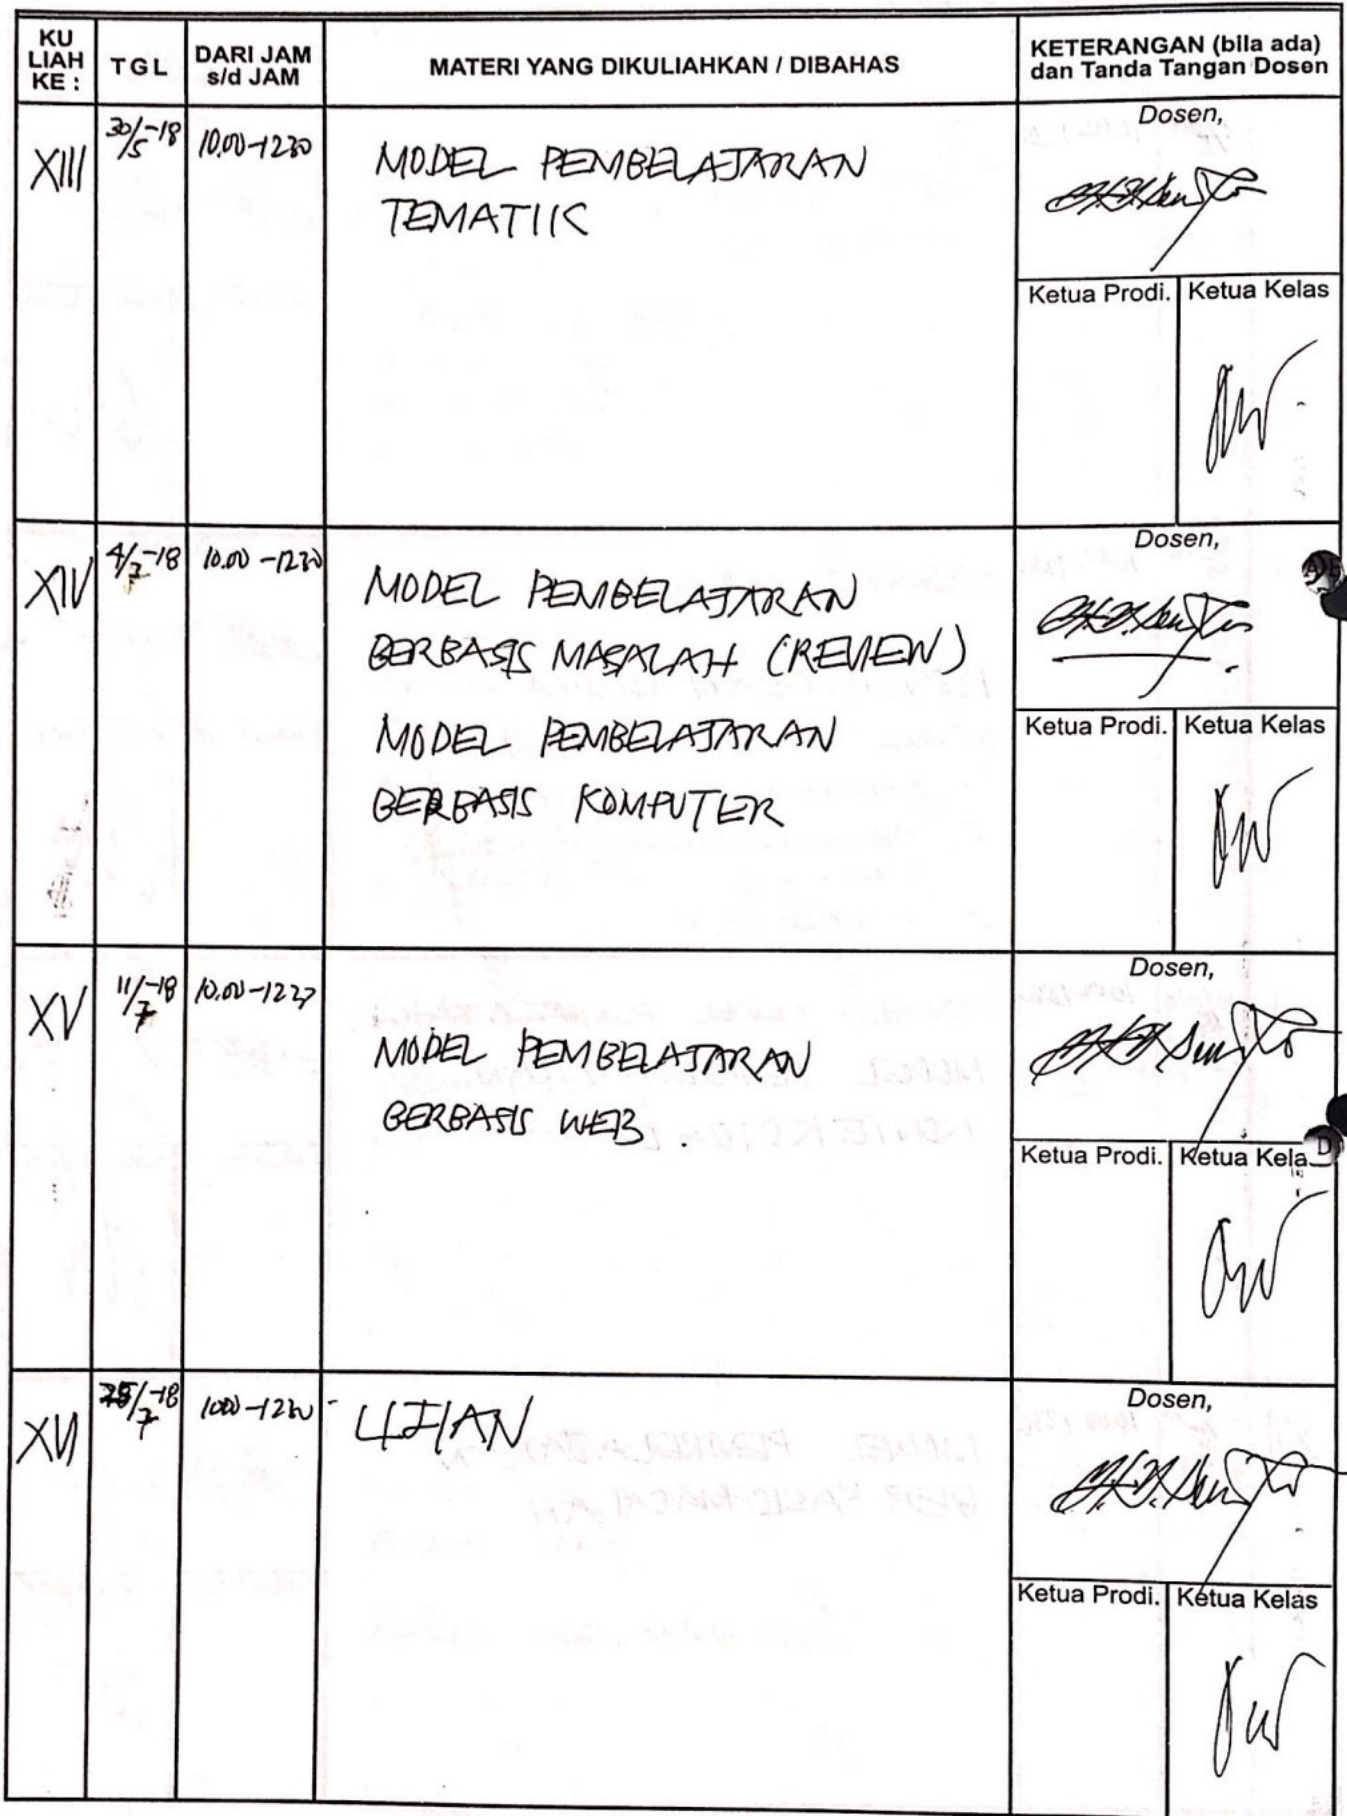 KU LIAH KE :
TGL
DARI JAM s/d JAM
MATERI YANG DIKULIAHKAN / DIBAHAS
KETERANGAN (bila ada) dan Tanda Tangan Dosen
XIII
30/5-18
10.00-1230
MODEL PEMBELAJARAN
TEMATIK
Dosen,
Ketua Prodi.
Ketua Kelas
XIV
4/7-18
10.00-1230
MODEL PEMBELAJARAN
BERBASIS MASALAH (REVIEW)
MODEL PEMBELAJARAN
BERBASIS KOMPUTER
Dosen,
Ketua Prodi.
Ketua Kelas
XV
11/7-18
MODEL PEMBELAJARAN
BERBASIS WEB.
Dosen,
Ketua Prodi.
Ketua Kela
D
XVI
UJIAN
Dosen,
Ketua Prodi.
Ketua Kelas